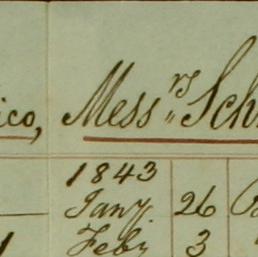 ico, Mess rs Sch
1843
Jany. 26
Feby 3